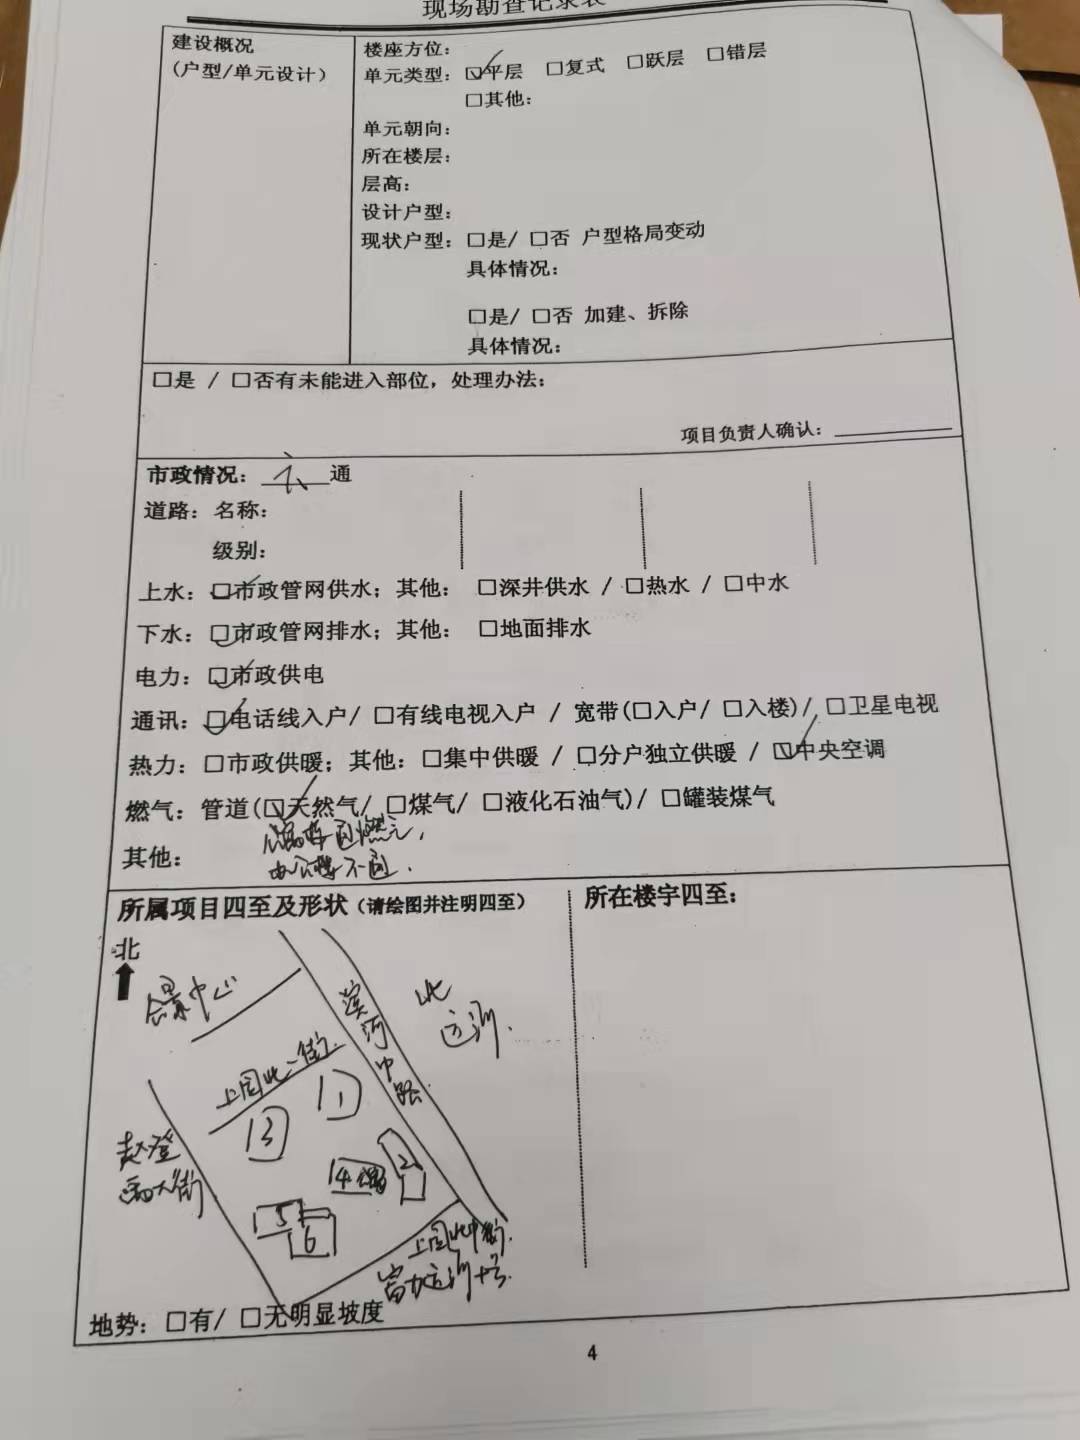 现场勘查记录表
建设概况
(户型/单元设计)
楼座方位：
单元类型：☑平层 □复式 □跃层 □错层
□其他：
单元朝向：
所在楼层：
层高：
设计户型：
现状户型：□是/ □否 户型格局变动
具体情况：
□是/ □否 加建、拆除
具体情况：
□是 / □否有未能进入部位，处理办法：
项目负责人确认：
市政情况：六通
道路：名称：
级别：
上水：☑市政管网供水；其他： □深井供水 / □热水 / □中水
下水：☑市政管网排水；其他： □地面排水
电力：☑市政供电
通讯：☑电话线入户/ □有线电视入户 / 宽带(□入户/ □入楼)/ □卫星电视
热力：□市政供暖；其他：□集中供暖 / □分户独立供暖 / ☑中央空调
燃气：管道(☑天然气/ □煤气/ □液化石油气)/ □罐装煤气
其他：
办公楼不通.
所属项目四至及形状（请绘图并注明四至）
所在楼宇四至：
北
合景中心
汉河中路
上园北一街
1
3
2
14
5
6
大街
上园北中街.
地势：□有/ □无明显坡度
4